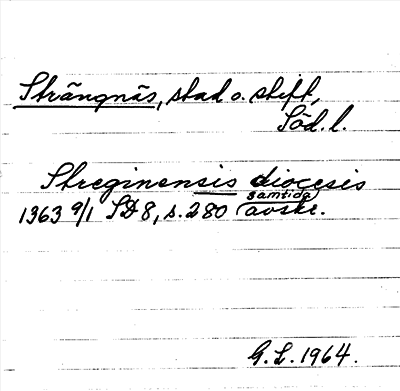 Strängnäs, stad o. stift,
Söd. l.
Streginensis diocesis
1363 9/1 SD 8, s. 280 samtida avskr.
G. L. 1964.